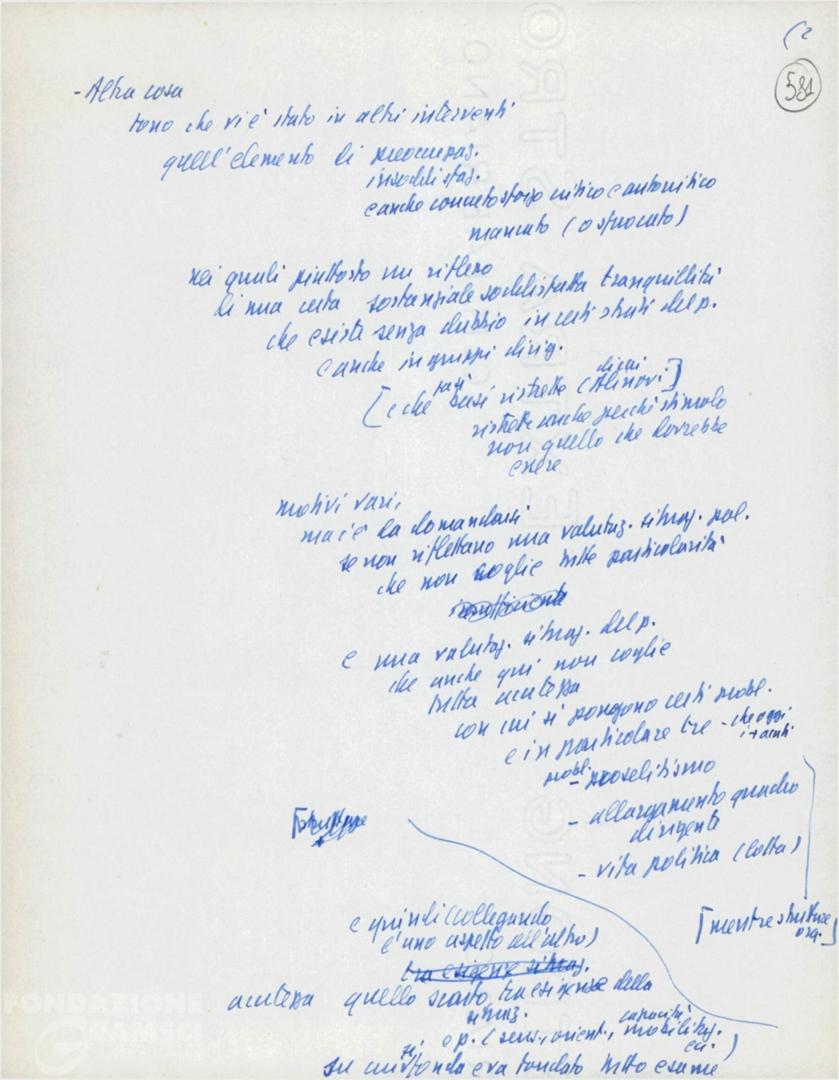 (2
581
- Altra cosa
tono che vi è stato in altri interventi
quell'elemento di preoccupaz.
insoddisfaz.
e anche concreto sforzo critico e autocritico
mancato (o sfuocato)
nei quali piuttosto un riflesso
di una certa sostanziale soddisfatta tranquillità
che esiste senza dubbio in certi strati del p.
e anche in gruppi dirig.
[e che basi ristrette (Alinovi)]
ristrette anche perché stimolo
non quello che dovrebbe
essere
motivi vari,
ma c'è da domandarsi
se non riflettano una valutaz. situaz. pol.
che non coglie tutte particolarità
e una valutaz. situaz. del p.
che anche qui non coglie
tutta acutezza
con cui si pongono certi probl.
e in particolare tre - che oggi
probl. - proselitismo
- allargamento quadro
dirigente
- vita politica (lotta)
[strutture
[mentre strutture
org.]
e quindi (collegando
è uno aspetto all'altro)
tra esigenze situaz.
acutezza quello scarto, tra esigenze della
situaz.
e p. (sens., orient., capacità mobilitaz.
ecc.)
su cui si fonda era fondato tutto esame
FONDAZIONE
GRAMSCI